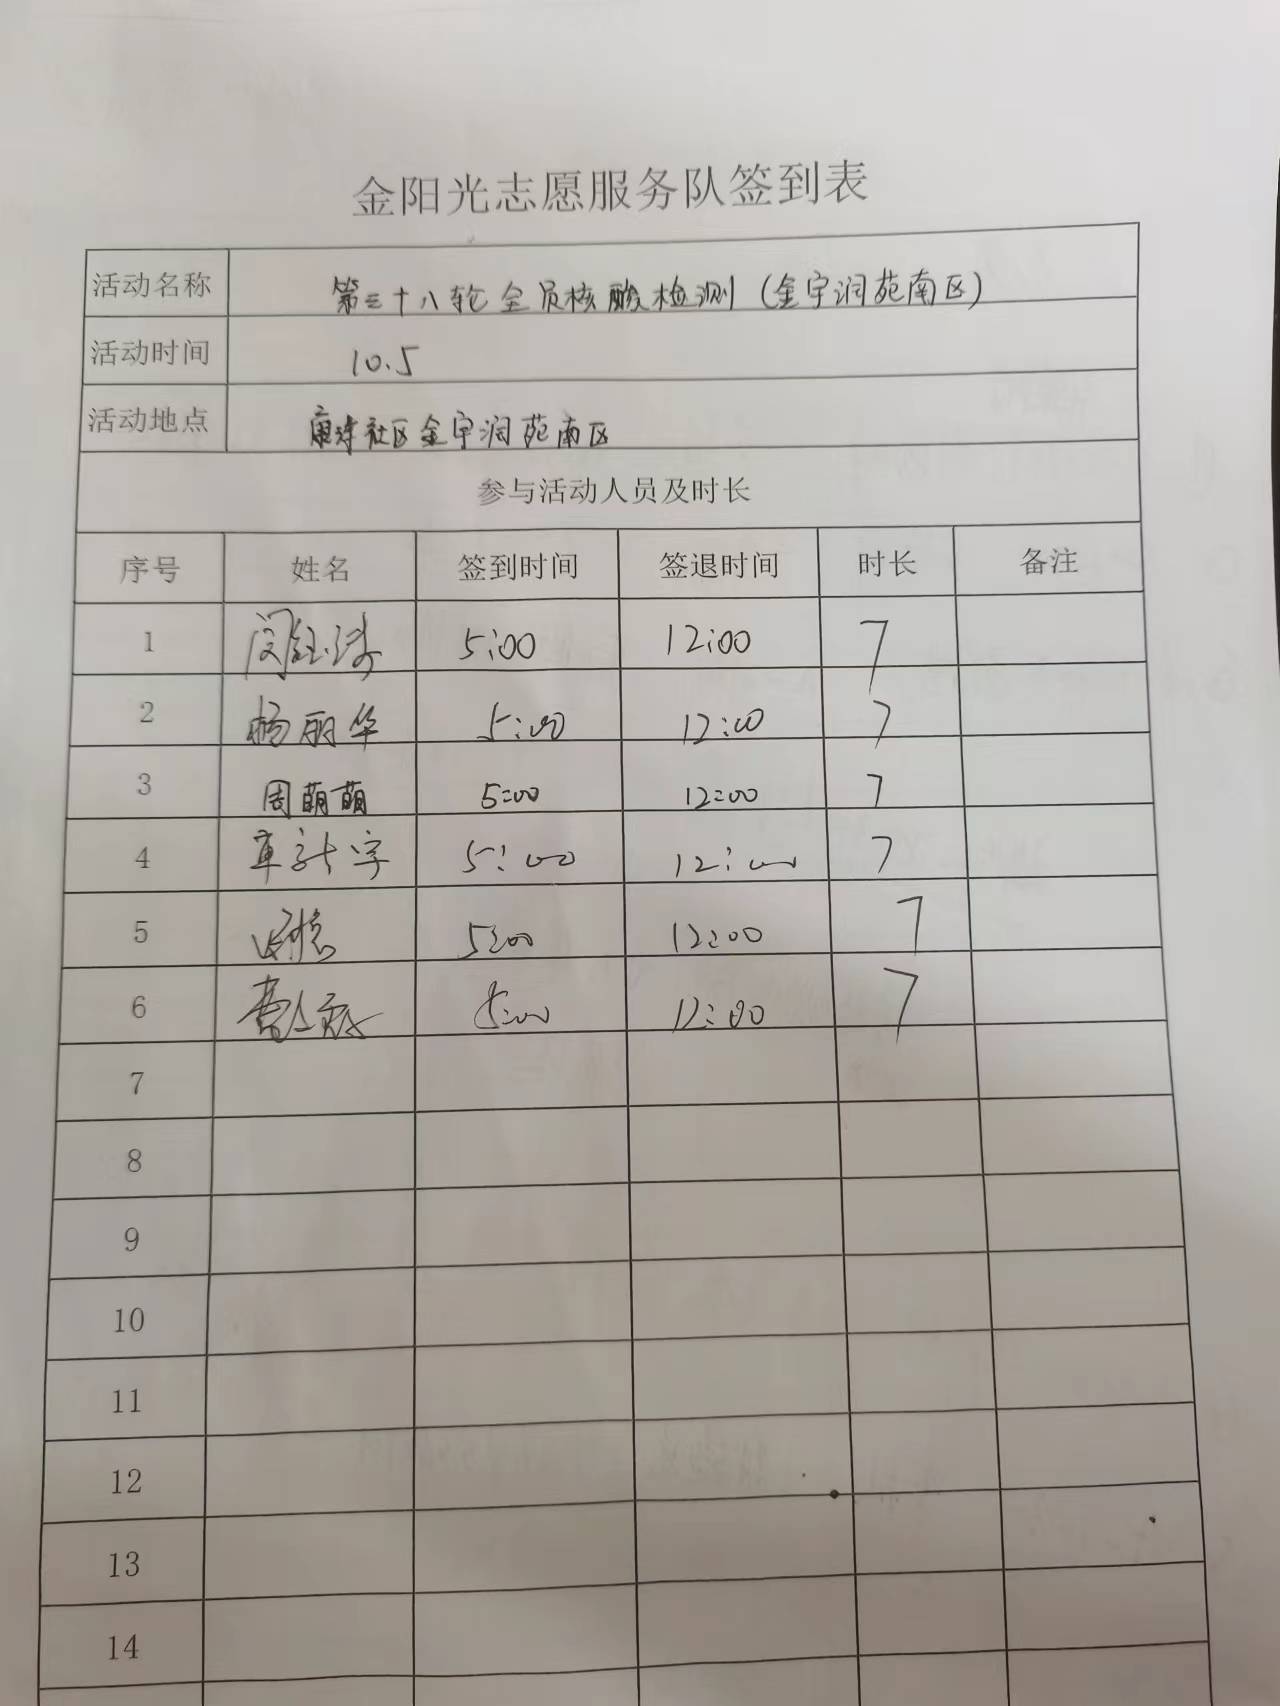 金阳光志愿服务队签到表
活动名称 第三十八轮全员核酸检测(金宇润苑南区)
活动时间 10.5
活动地点 社区金宇润苑南区
参与活动人员及时长
序号 姓名 签到时间 签退时间 时长 备注
1 5:00 12:00 7
2 杨丽华 5:00 12:00 7
3 周萌萌 5:00 12:00 7
4 5:00 12:00 7
5 5:00 12:00 7
6 5:00 12:00 7
7
8
9
10
11
12
13
14